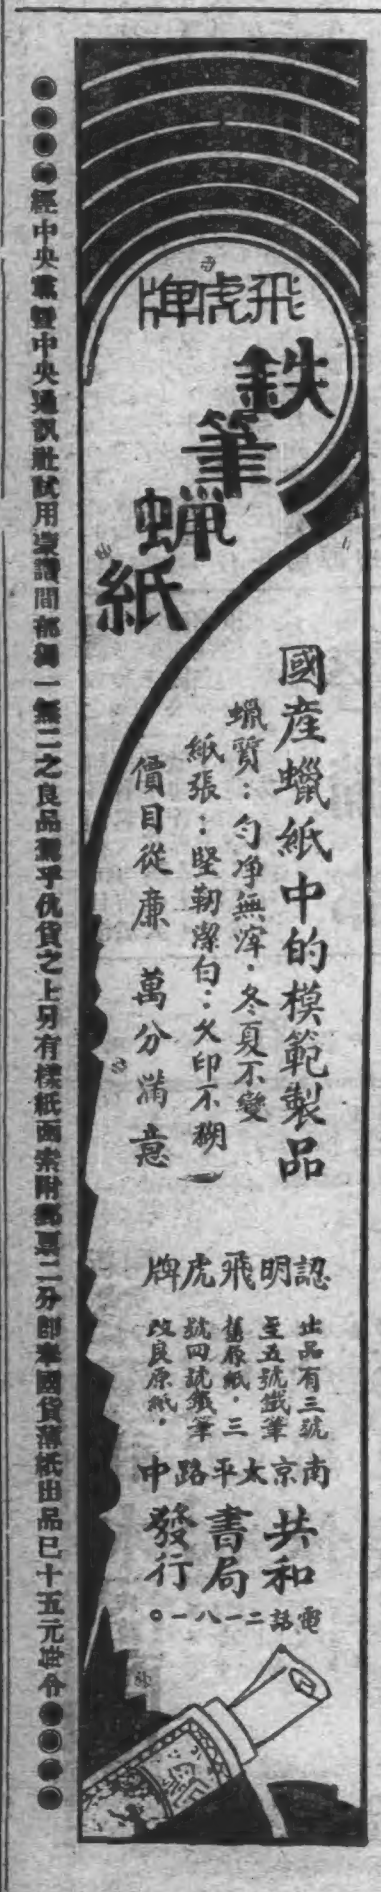 飛虎牌
鉄筆蝋紙
國產蠟紙中的模範製品
蝋質：勻净無滓．冬夏不變
紙張：堅韌潔白：久印不糊
價目從廉 萬分滿意
認明飛虎牌
出品有三號
至五號鐵筆
舊原紙．三
號四號鐵筆
改良原紙．
南京太平路中
共和書局發行
電話二一八一〇
經中央黨暨中央通訊社試用 一無二之良品駕乎仇貨之上另有樣紙函索附郵票二分即奉國貨薄紙出品已十五元